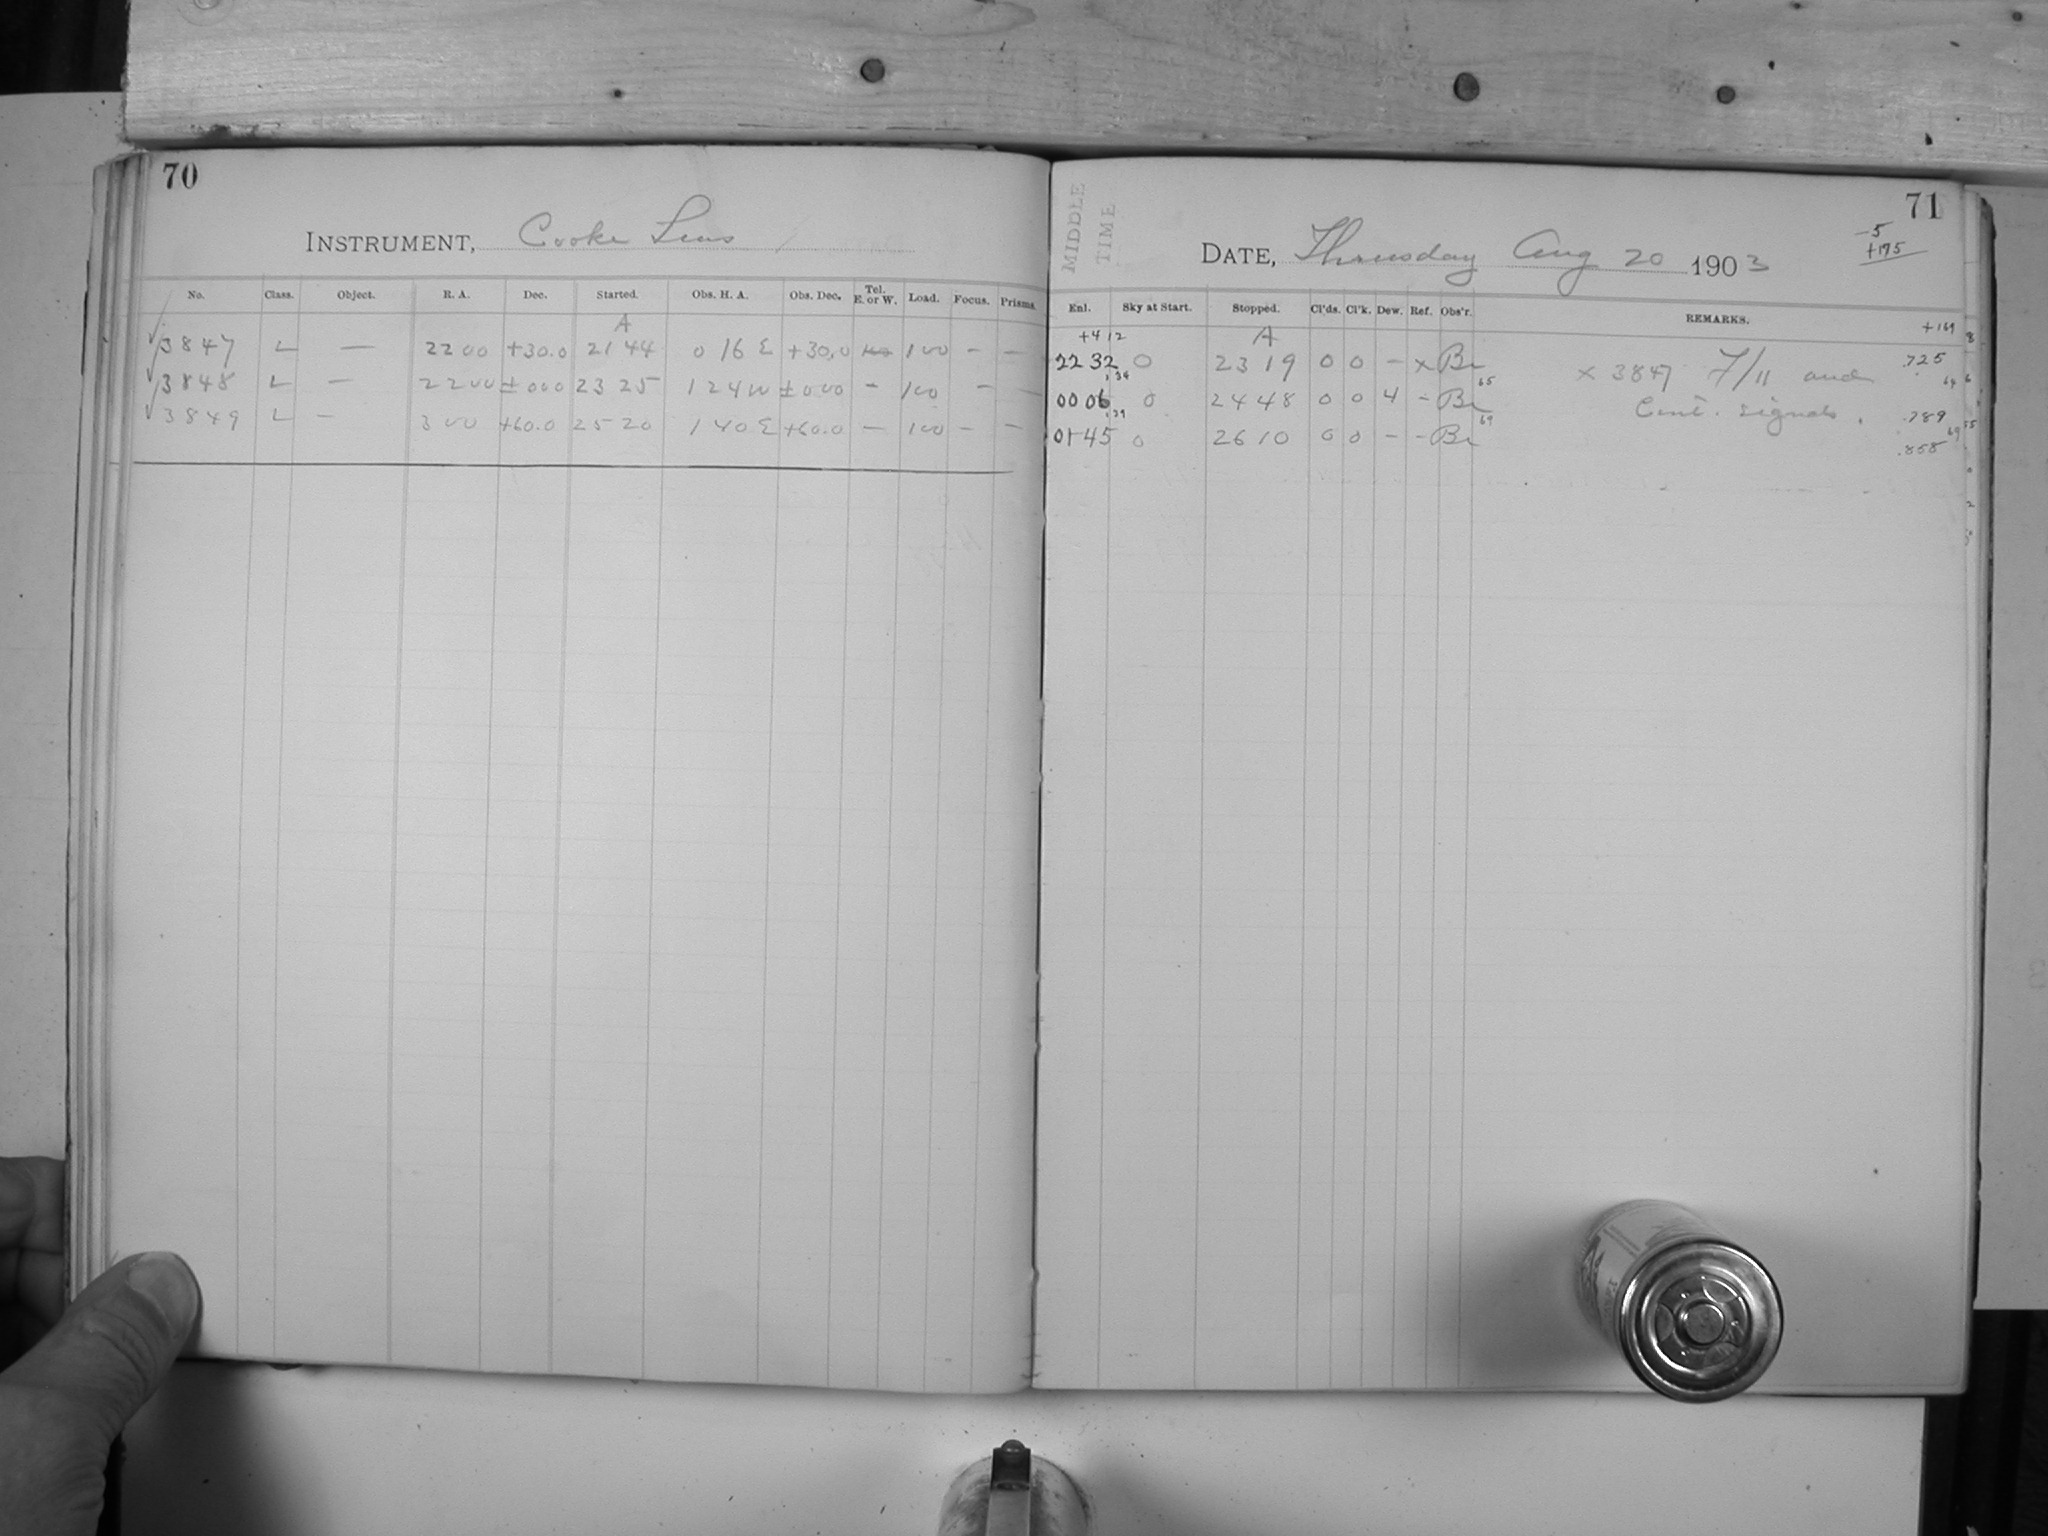 70
INSTRUMENT, Cooke Lens
No. Class. Object. R. A. Dec. Started. Obs. H. A. Obs. Dec. Tel. E. or W. Load. Focus. Prisms.
A
√3847 L — 22 00 +30.0 21 44 0 16 E +30.0 100 100 - -
√3848 L — 22 00 ±000 23 25 1 24 W ±000 - 100 - -
√3849 L — 3 00 +60.0 25 20 1 40 E +60.0 — 100 - -
MIDDLE
TIME
71
-5
+175
DATE, Thursday Aug 20 1903
Enl. Sky at Start. Stopped. Cl'ds. Cl'k. Dew. Ref. Obs'r. REMARKS.
+4 12 A +169
22 32 0 23 19 0 0 - x Br x 3847 F/11 and .725
134 65 64
00 06 0 24 48 0 0 4 - Br Cent. signals. .789
139 69 69
01 45 0 26 10 0 0 - - Br .858